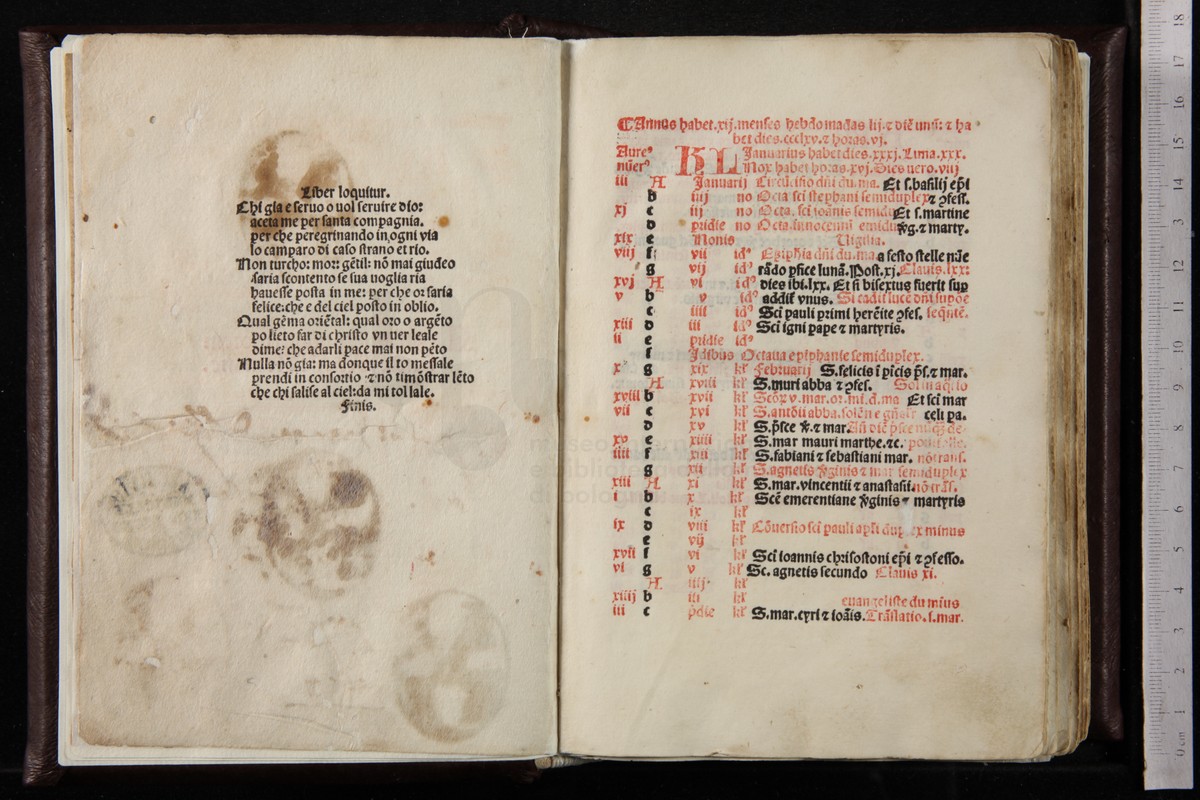 Liber loquitur.
Chi gia e seruo o uol seruire dio:
acceta me per santa compagnia.
per che peregrinando in ogni via
lo camparo di caso strano et rio.
Non turcho: mor: gētil: nō mai giudeo
saria scontento se sua uoglia ria
hauesse posta in me: per che or saria
felice: che e del ciel posto in oblio.
Qual gēma oriētal: qual oro o argēto
po lieto far di christo vn uer leale
dime: che adarli pace mai non pēto
Nulla nō gia: ma donque il to messale
prendi in consortio ⁊ nō timōstrar lēto
che chi salise al ciel: da mi tol lale.
Finis.
Annus habet .xij. menses hebdomadas lij. ⁊ diē unū: ⁊ ha
bet dies .ccclxv. ⁊ horas .vj.
Aure⁹ KL Januarius habet dies .xxxj. Luna .xxx.
nūer⁹ Nox habet horas .xvj. Dies uero .viij
iii A Januarij Circūcisio dñi du. ma. Et s. basilij ep̄i
b iiij no Octa sci stephani semiduplex ⁊ ꝯfess.
xj c iij no Octa. sci ioānis semidu Et s. martine
d pridie no Octa. innocentū v̄g. ⁊ marty.
xix e Nonis Uigilia.
viij f vii id⁹ Epiphīa dñi du. ma. a festo stelle nūe
g vij id⁹ rādo ꝑfice lunā. Post .xj. Clauis .lxx:
xvj A vi id⁹ dies ibi .lxx. Et si bisextus fuerit sup
v b v id⁹ addit̄ vnus. Si cadit luce dñi
c iiii id⁹ Sci pauli primi herēite ꝯfes. seqūte.
xiii d iii id⁹ Sci igni pape ⁊ martyris.
ii e pridie id⁹
f Idibus Octaua epiphanie semiduplex.
x g xix kł Februarij S. felicis ī pīcis p̄s. ⁊ mar.
A xviii kł S. muri abba ⁊ ꝯfes. Sol in aq̄rio
xviii b xvii kł v. mar. or. mi. d. ma Et sci mar
vii c xvi kł S. antōii abba. celi pa.
d xv kł S. pʼsce v̄. ⁊ mar.
xv e xiiii kł S. mar mauri marthe. ⁊c.
iiii f xiii kł S. fabiani ⁊ sebastiani mar. nō trāns.
g xii kł S. agnetis v̄ginis ⁊ mar semiduplex
xiii A xi kł S. mar. vincentii ⁊ anastasii. nō trās.
i b x kł Scē emerentiane v̄ginis ⁊ martyris
c ix kł
ix d viii kł Cōuersio sci pauli apłi dup̄ ex minus
e vij kł
xvii f vi kł Sci ioannis chrisostoni ep̄i ⁊ ꝯfesso.
vi g v kł Sc. agnetis secundo Clauis xi.
A iiij kł
xiiij b iii kł euangeliste du mius
iii c pʼdie kł S. mar. cyri ⁊ ioāis. Trāslatio. s. mar.